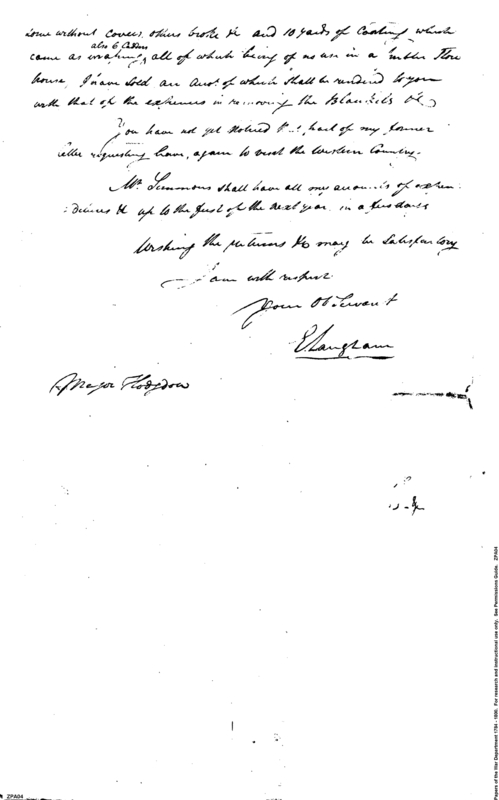 some without covers, others broke &c and 10 yards of Coating which
also 6 
came as wrapping, all of which being of no use in a public Store
house, I have Sold an Acct. of which Shall be rendered to you
with that of the expences in removing the Blankets &c
You have not yet Noticed that part of my former
letter requesting leave, again to visit the Western Country.
Mr. Simmons shall have all my accounts of expen
:ditures &c up to the first of the next year in a few days
Wishing the returns &c may be Satisfactory
I am with respect
Your Ob Servant
E Langham
Major Hodgdon
Papers of the War Department 1784 - 1800. For research and instructional use only. See Permissions Guide. ZPA04
ZPA04